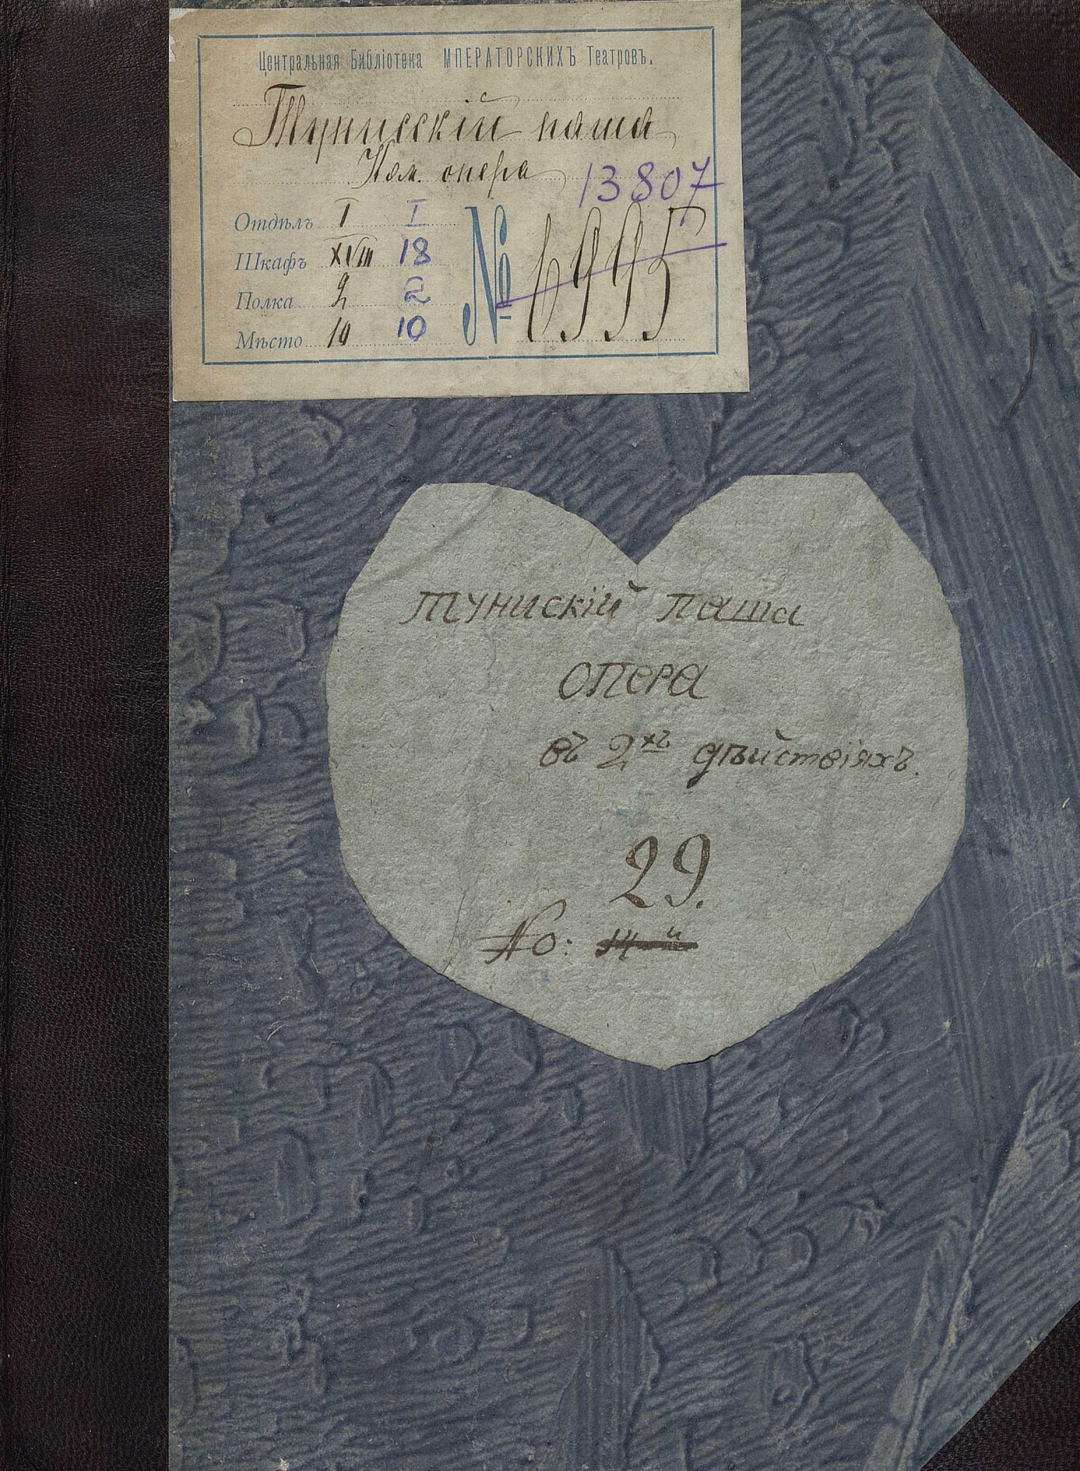 Центральная Библіотека ИМПЕРАТОРСКИХЪ Театровъ.
Тунисскій паша
Ком. опера
13807
Отдѣлъ I I
Шкафъ XVIII 18
Полка 2 2
Мѣсто 10 10
№ 6995
Тунискій паша
опера
въ 2хъ дѣйствіяхъ.
29.
No: 14й